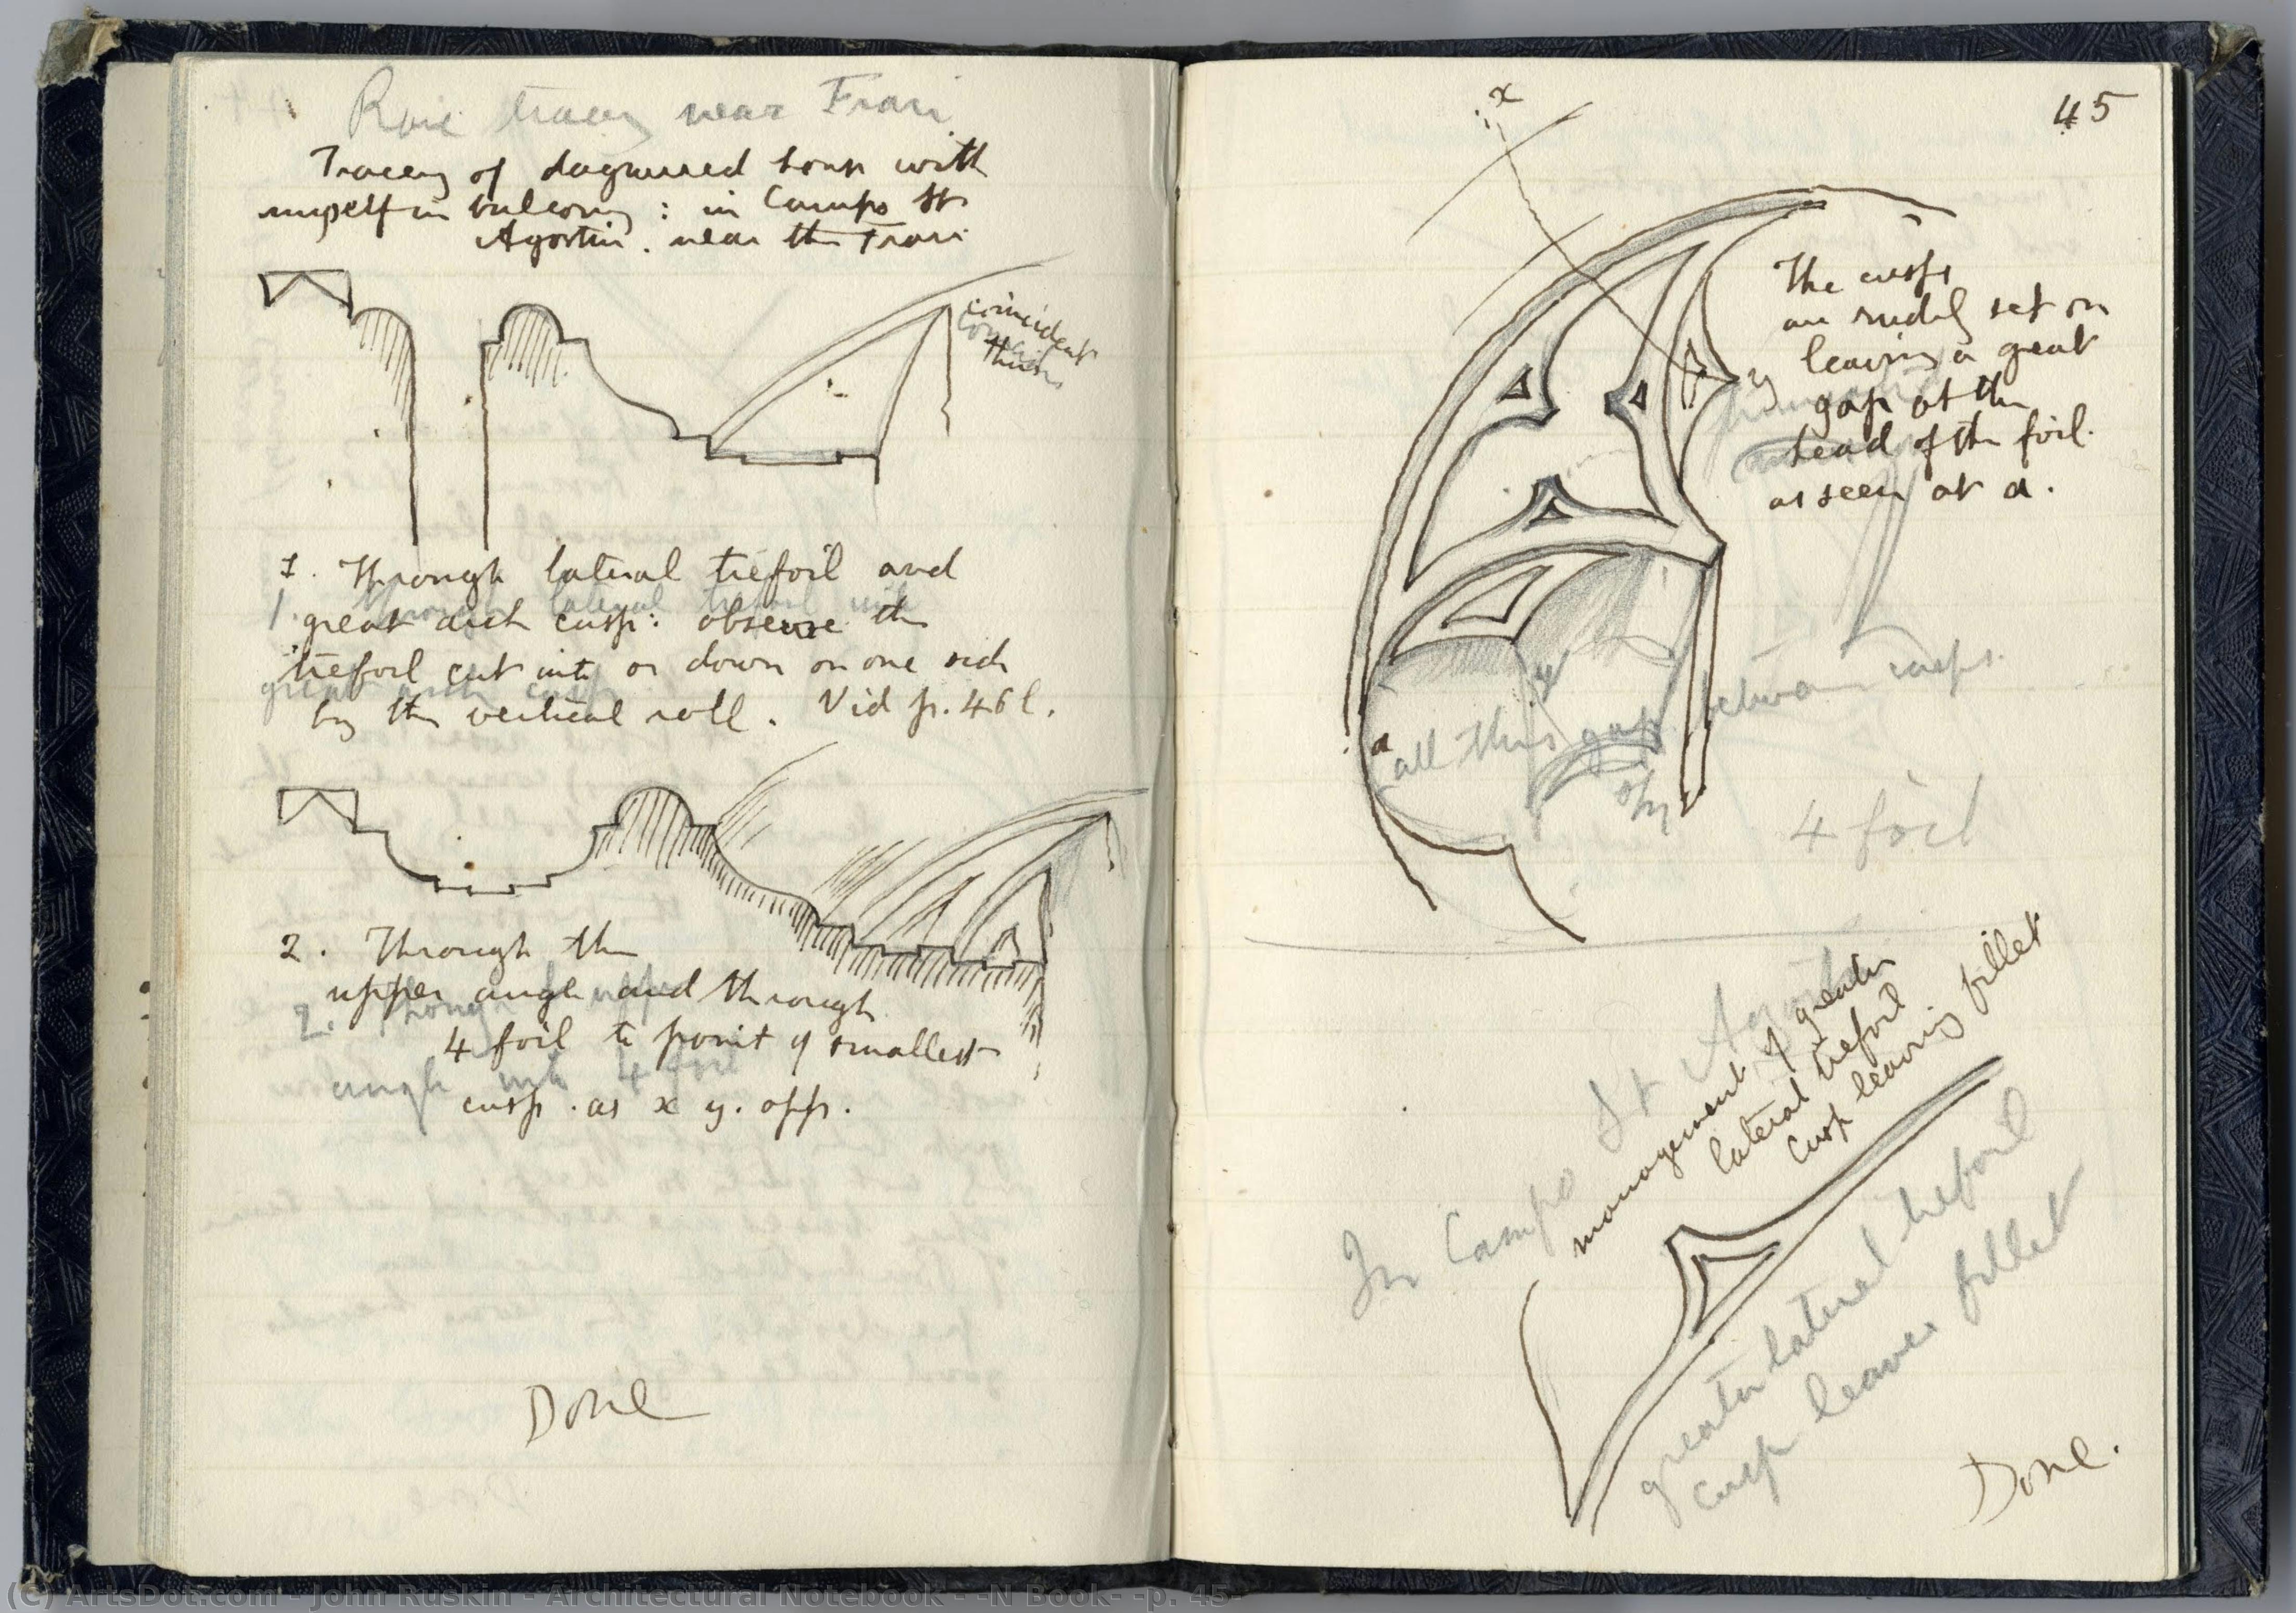 tracery near Frari
Tracery of daguerred house with
myself in balcony: in Campo St
Agostin. near the Frari
coincident
this
1. Through lateral trefoil and
1. through lateral trefoil with
great arch cusp: observe the
trefoil cut into or down on one side
great arch cusp
by the vertical roll. Vid p. 46 l.
2. Through the
upper angle and through
2. through upper
4 foil to point of smallest
angle into 4 foil
cusp. as x y. opp.
Done
45
x
The cusps
are rudely set on
y leaving a great
gap at the
head of the foil.
as seen at a.
y
a
all this gap between cusps.
4 foil
In Campo St Agostin
management of greater
lateral trefoil
cusp leaving fillet
greater lateral trefoil
cusp leaves fillet
Done.
(c) ArtsDot.com - John Ruskin - Architectural Notebook - -N Book- -p. 45-